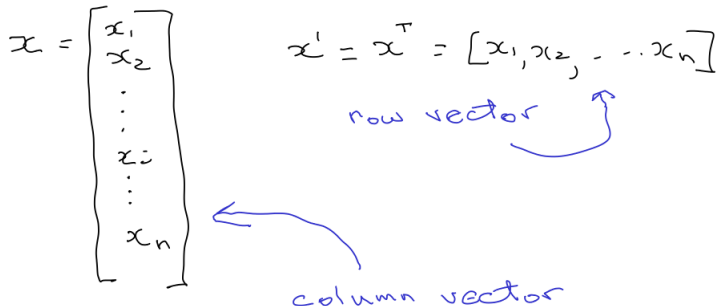 x = [x₁
x₂
⋮
xᵢ
⋮
xₙ]
x' = xᵀ = [x₁, x₂, - - · xₙ]
row vector
column vector